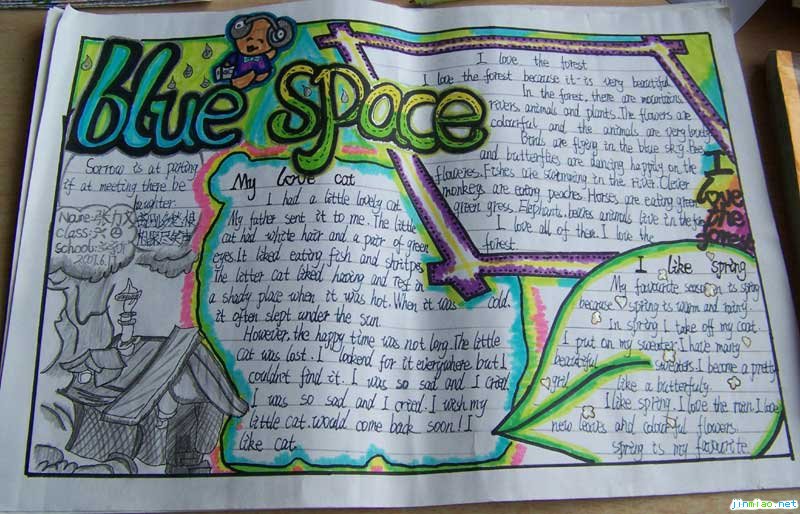 blue space
Sorrow is at parting
if at meeting there be
laughter.
Name:张
class:六
school:
2007.6.17
My love cat
I had a little lovely cat.
My father sent it to me. The little
cat had white hair and a pair of green
eyes. It liked eating fish and
The litter cat liked having and rest in
a shady place when it was hot. When it was cold,
it often slept under the sun.
However, the happy time was not long. The little
cat was lost. I lookend for it everywhere but I
couldn't find it. I was so sad and I cried.
I was so sad and I cried. I wish my
little cat would come back soon! I
like cat.
I love the forest
I love the forest because it is very beautiful.
In the forest, there are mountains,
rivers animals and plants. The flowers are
colourful, and the animals are very lovely.
Birds are flying in the blue sky. Bees
and butterflies are dancing happily on the
flowers. Fishes are swimming in the river. Clever
monkeys are eating peaches. Horses are eating green
green gress. Elephants, bears animals live in the
I love all of them. I love the
forest.
I love the forest
I like spring
My favourite season is spring
because spring is warm and rainy.
In spring I take off my coat.
I put on my sweater. I have many
beautiful sweaters. I become a pretty
gril like a butterfuly.
I like spring. I love the rain. I love
new leaves and colourful flowers.
spring is my favourite
jinmiao.net